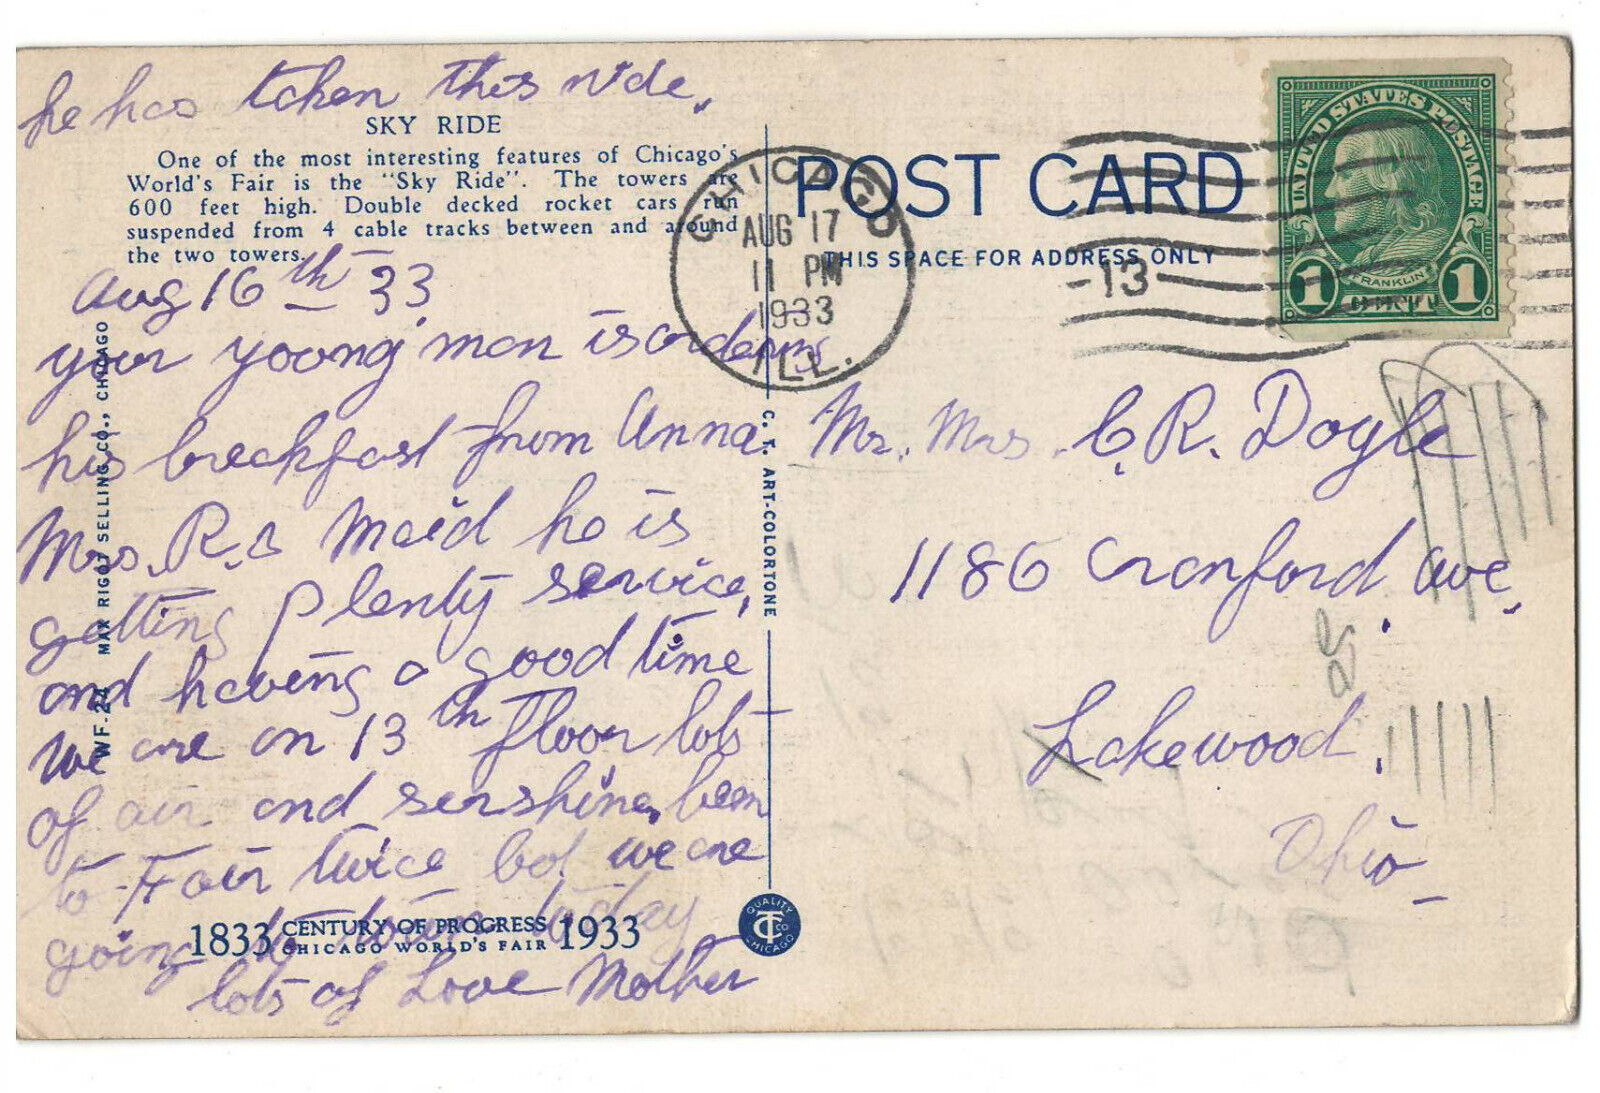 he has taken this ride.
SKY RIDE
One of the most interesting features of Chicago's
World's Fair is the "Sky Ride". The towers are
600 feet high. Double decked rocket cars run
suspended from 4 cable tracks between and around
the two towers.
Aug 16th 33
your young man is ordering
his breakfast from Anna
Mrs. R.s Maid he is
getting plenty service,
and having a good time
we are on 13th Floor, lots
of air and sunshine, been
to Fair twice but we are
going to town today
lots of Love Mother
1833 CENTURY OF PROGRESS 1933
CHICAGO WORLD'S FAIR
WF-24 MAX RIGOT SELLING CO., CHICAGO
C. T. ART-COLORTONE
QUALITY
CT CO
CHICAGO
POST CARD
THIS SPACE FOR ADDRESS ONLY
CHICAGO
AUG 17
11 PM
1933
ILL.
-13-
UNITED STATES POSTAGE
FRANKLIN
1 CENT 1
Mr. Mrs. C. R. Doyle
1186 Cranford Ave,
Lakewood,
Ohio